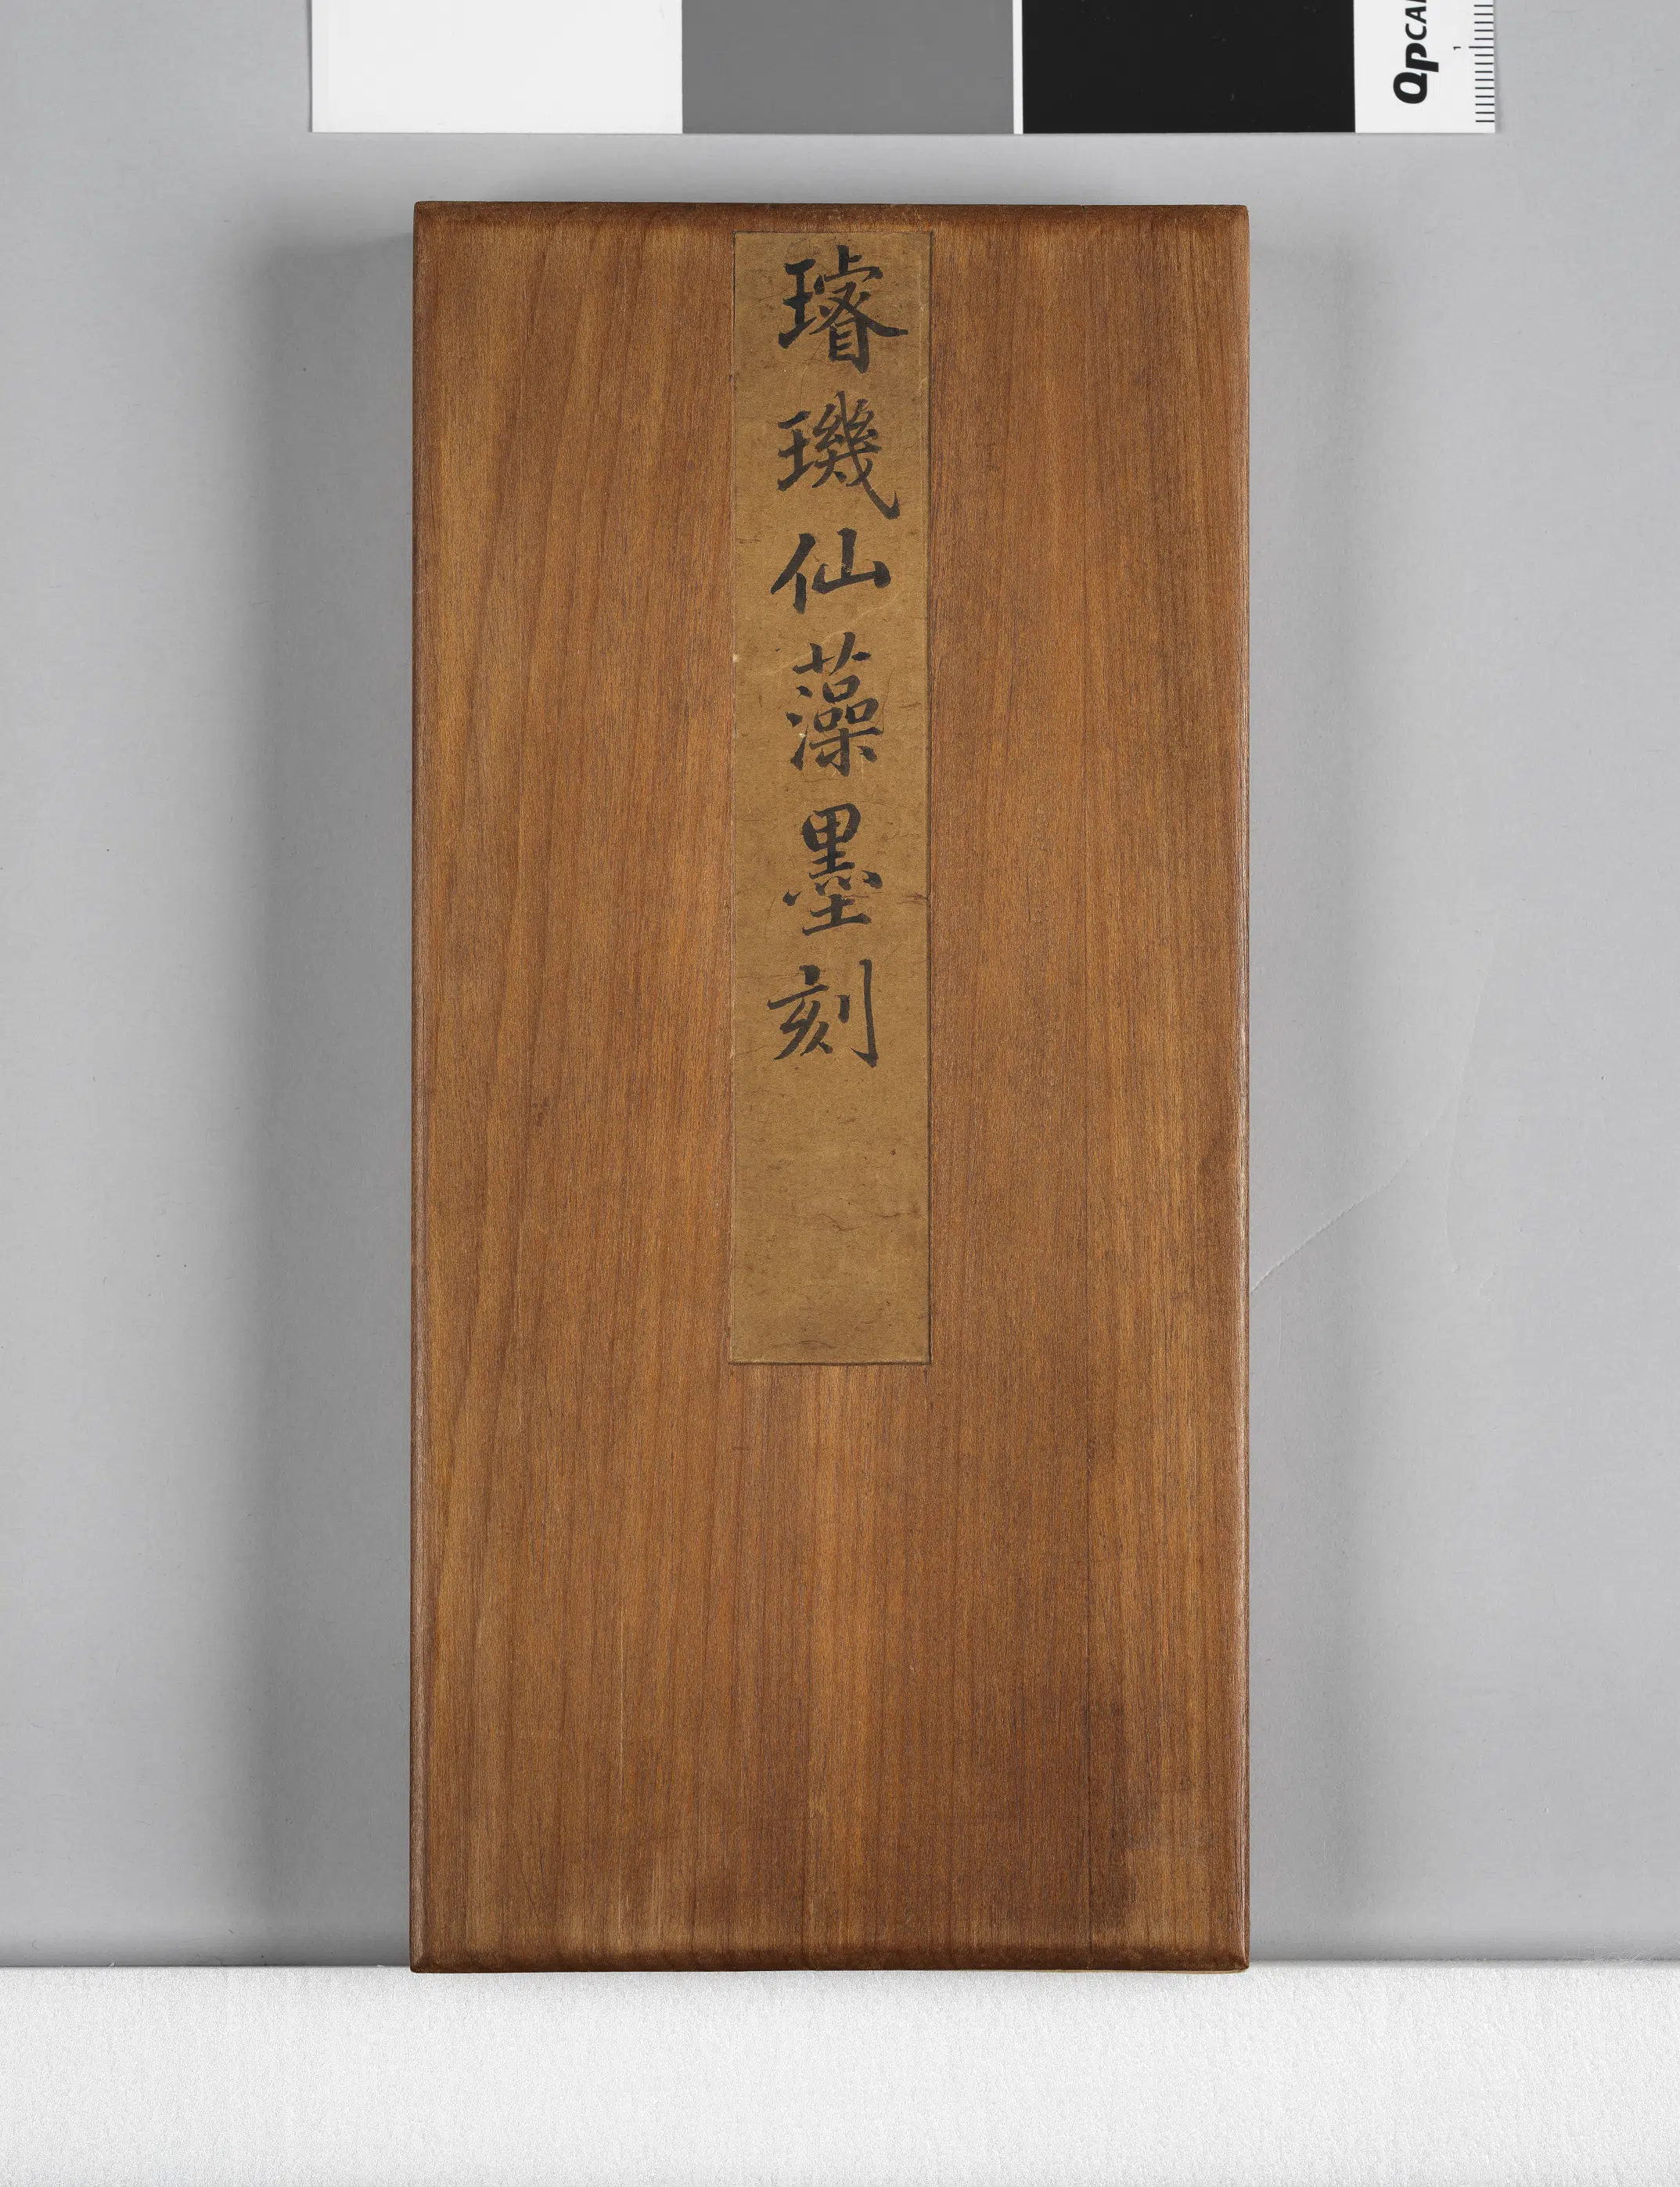 璿璣仙藻墨刻
QPCAR
1